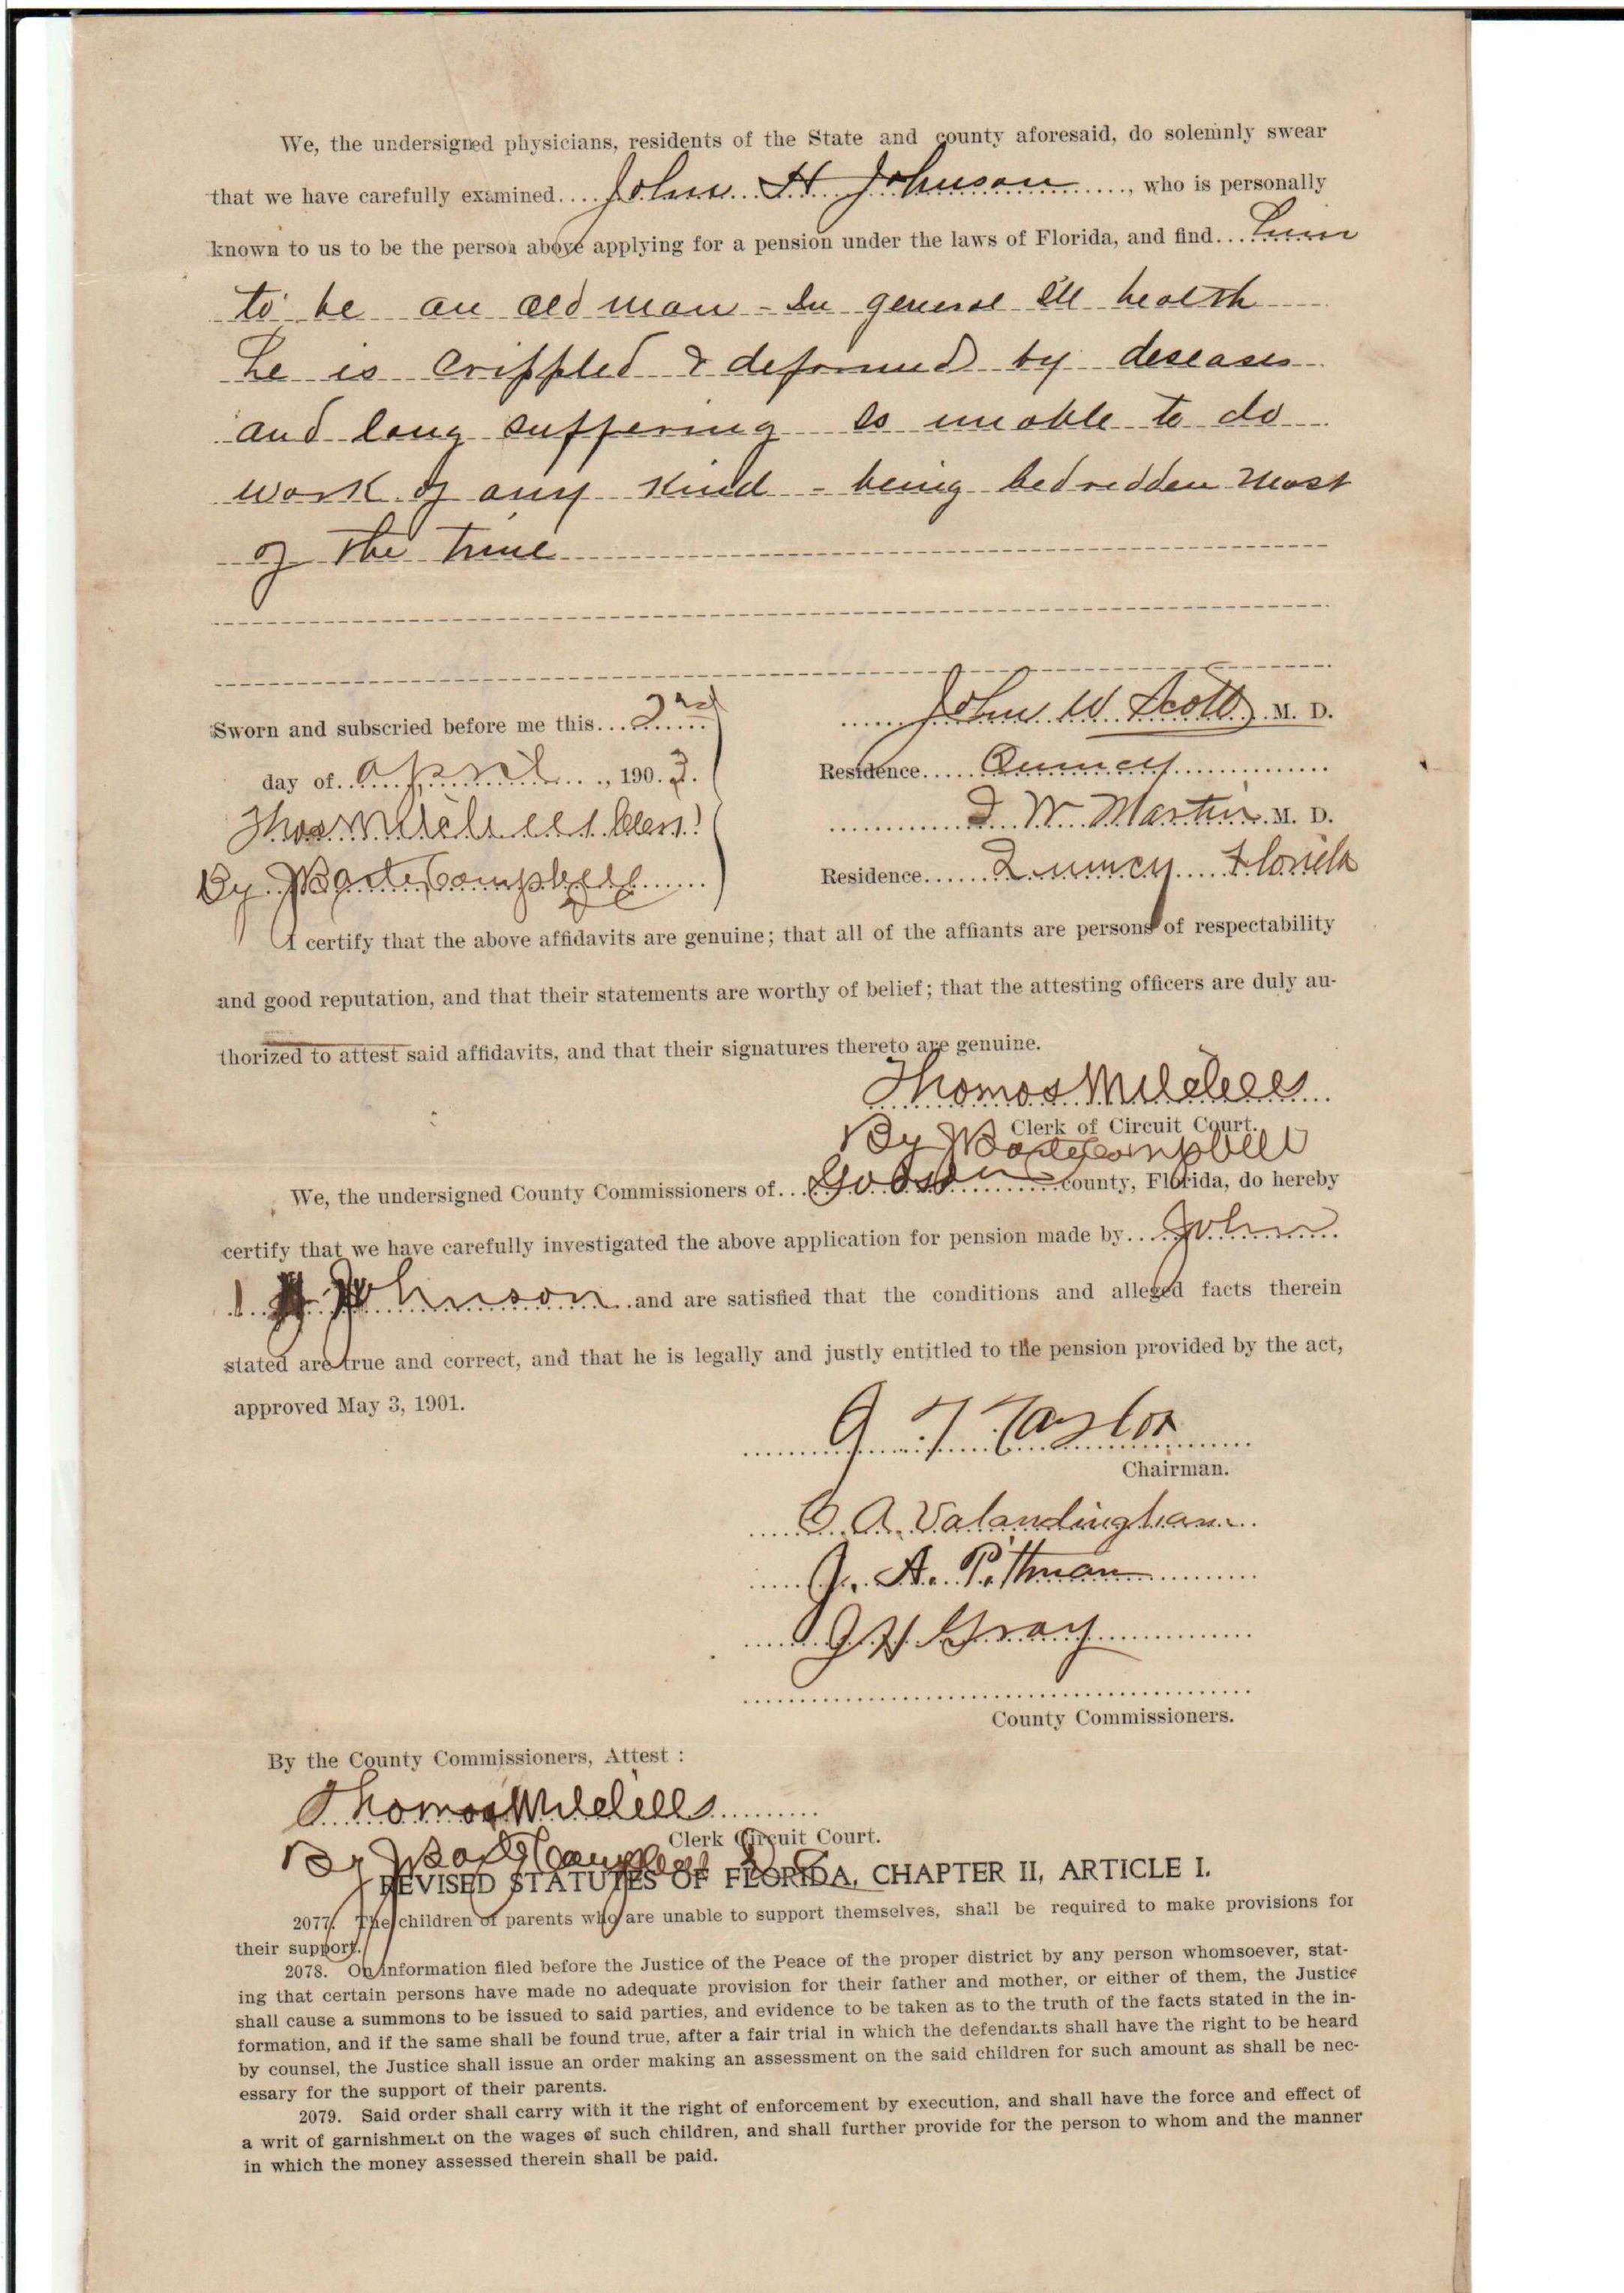 We, the undersigned physicians, residents of the State and county aforesaid, do solemnly swear
that we have carefully examined....John H Johnson......, who is personally
known to us to be the person above applying for a pension under the laws of Florida, and find...him
to be an old man - In general ill health
he is crippled & deformed by deseases
and long suffering Is unable to do
work of any kind - being bedridden most
of the time
Sworn and subscried before me this...2nd
John W Scott M. D.
day of..April..., 190.3.
Residence.....Quincy
Thos
W Martin M. D.
By Campbell
Residence......Quincy.....Florida
I certify that the above affidavits are genuine; that all of the affiants are persons of respectability
and good reputation, and that their statements are worthy of belief; that the attesting officers are duly au-
thorized to attest said affidavits, and that their signatures thereto are genuine.
Thomas
Clerk of Circuit Court.
By Campbell
We, the undersigned County Commissioners of...county, Florida, do hereby
certify that we have carefully investigated the above application for pension made by...John
H Johnson and are satisfied that the conditions and alleged facts therein
stated are true and correct, and that he is legally and justly entitled to the pension provided by the act,
approved May 3, 1901.
Taylor
Chairman.
A. Valandingham
J. A. Pittman
J H Gray
County Commissioners.
By the County Commissioners, Attest :
Thomas
Clerk Circuit Court.
By Campbell D C
REVISED STATUTES OF FLORIDA, CHAPTER II, ARTICLE I.
2077. The children of parents who are unable to support themselves, shall be required to make provisions for
their support.
2078. On information filed before the Justice of the Peace of the proper district by any person whomsoever, stat-
ing that certain persons have made no adequate provision for their father and mother, or either of them, the Justice
shall cause a summons to be issued to said parties, and evidence to be taken as to the truth of the facts stated in the in-
formation, and if the same shall be found true, after a fair trial in which the defendants shall have the right to be heard
by counsel, the Justice shall issue an order making an assessment on the said children for such amount as shall be nec-
essary for the support of their parents.
2079. Said order shall carry with it the right of enforcement by execution, and shall have the force and effect of
a writ of garnishment on the wages of such children, and shall further provide for the person to whom and the manner
in which the money assessed therein shall be paid.